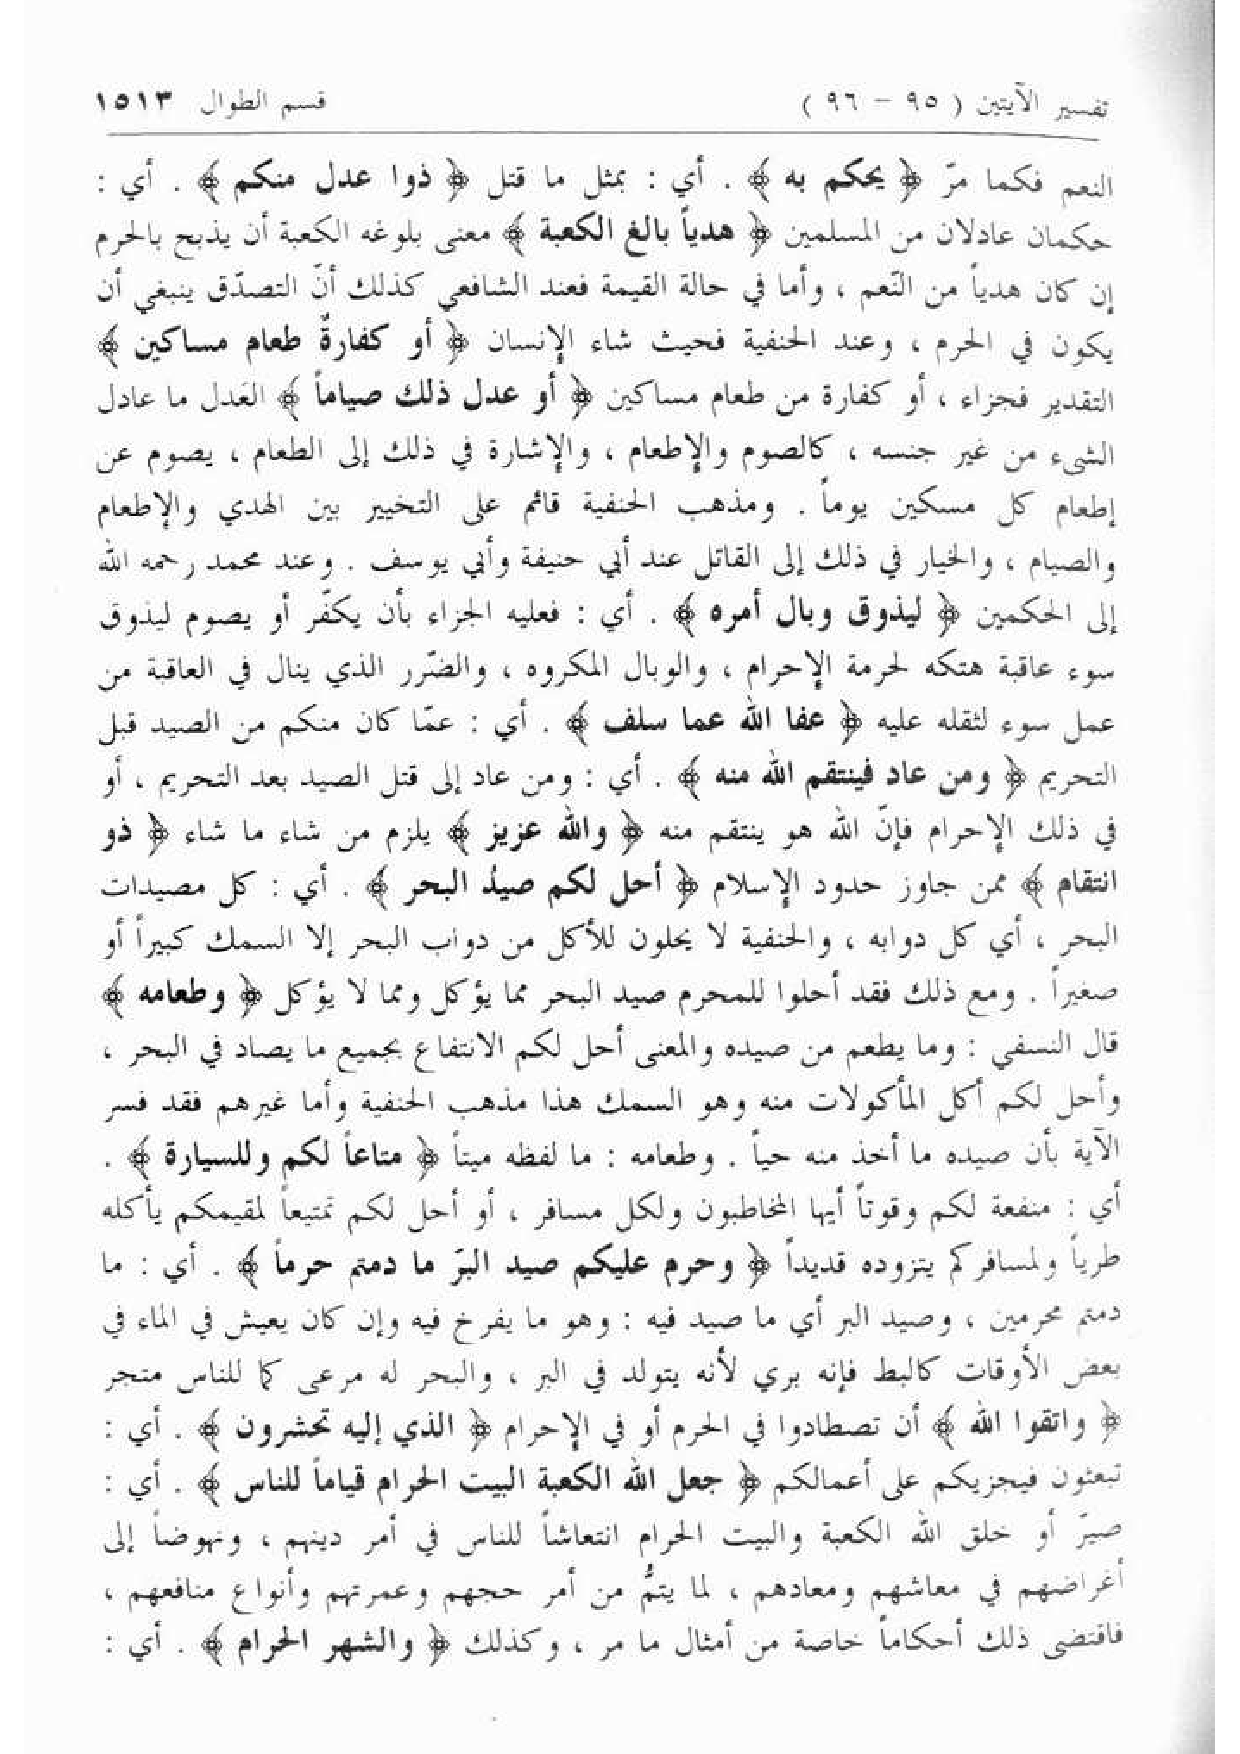 تفسير الآيتين ( ٩٥ - ٩٦ ) قسم الطوال ١٥١٣
النعم فكما مرّ ﴿ يحكم به ﴾ . أي : بمثل ما قتل ﴿ ذوا عدل منكم ﴾ . أي :
حكمان عادلان من المسلمين ﴿ هدياً بالغ الكعبة ﴾ معنى بلوغه الكعبة أن يذبح بالحرم
إن كان هدياً من النّعم ، وأما في حالة القيمة فعند الشافعي كذلك أنّ التصدّق ينبغي أن
يكون في الحرم ، وعند الحنفية فحيث شاء الإنسان ﴿ أو كفارةٌ طعام مساكين ﴾
التقدير فجزاء ، أو كفارة من طعام مساكين ﴿ أو عدل ذلك صياماً ﴾ العَدل ما عادل
الشيء من غير جنسه ، كالصوم والإطعام ، والإشارة في ذلك إلى الطعام ، يصوم عن
إطعام كل مسكين يوماً . ومذهب الحنفية قائم على التخيير بين الهدي والإطعام
والصيام ، والخيار في ذلك إلى القاتل عند أبي حنيفة وأبي يوسف . وعند محمد رحمه الله
إلى الحكمين ﴿ ليذوق وبال أمره ﴾ . أي : فعليه الجزاء بأن يكفّر أو يصوم ليذوق
سوء عاقبة هتكه لحرمة الإحرام ، والوبال المكروه ، والضّرر الذي ينال في العاقبة من
عمل سوء لثقله عليه ﴿ عفا الله عما سلف ﴾ . أي : عمّا كان منكم من الصيد قبل
التحريم ﴿ ومن عاد فينتقم الله منه ﴾ . أي : ومن عاد إلى قتل الصيد بعد التحريم ، أو
في ذلك الإحرام فإنّ الله هو ينتقم منه ﴿ والله عزيز ﴾ يلزم من شاء ما شاء ﴿ ذو
انتقام ﴾ ممن جاوز حدود الإسلام ﴿ أحل لكم صيدُ البحر ﴾ . أي : كل مصيدات
البحر ، أي كل دوابه ، والحنفية لا يحلون للأكل من دواب البحر إلا السمك كبيراً أو
صغيراً . ومع ذلك فقد أحلوا للمحرم صيد البحر مما يؤكل ومما لا يؤكل ﴿ وطعامه ﴾
قال النسفي : وما يطعم من صيده والمعنى أحل لكم الانتفاع بجميع ما يصاد في البحر ،
وأحل لكم أكل المأكولات منه وهو السمك هذا مذهب الحنفية وأما غيرهم فقد فسر
الآية بأن صيده ما أخذ منه حياً . وطعامه : ما لفظه ميتاً ﴿ متاعاً لكم وللسيارة ﴾ .
أي : منفعة لكم وقوتاً أيها المخاطبون ولكل مسافر ، أو أحل لكم تمتيعاً لمقيمكم يأكله
طرياً ولمسافركم يتزوده قديداً ﴿ وحرم عليكم صيد البرّ ما دمتم حرماً ﴾ . أي : ما
دمتم محرمين ، وصيد البر أي ما صيد فيه : وهو ما يفرخ فيه وإن كان يعيش في الماء في
بعض الأوقات كالبط فإنه بري لأنه يتولد في البر ، والبحر له مرعى كما للناس متجر
﴿ واتقوا الله ﴾ أن تصطادوا في الحرم أو في الإحرام ﴿ الذي إليه تحشرون ﴾ . أي :
تبعثون فيجزيكم على أعمالكم ﴿ جعل الله الكعبة البيت الحرام قياماً للناس ﴾ . أي :
صيّر أو خلق الله الكعبة والبيت الحرام انتعاشاً للناس في أمر دينهم ، ونهوضاً إلى
أغراضهم في معاشهم ومعادهم ، لما يتمُّ من أمر حجهم وعمرتهم وأنواع منافعهم ،
فاقتضى ذلك أحكاماً خاصة من أمثال ما مر ، وكذلك ﴿ والشهر الحرام ﴾ . أي :